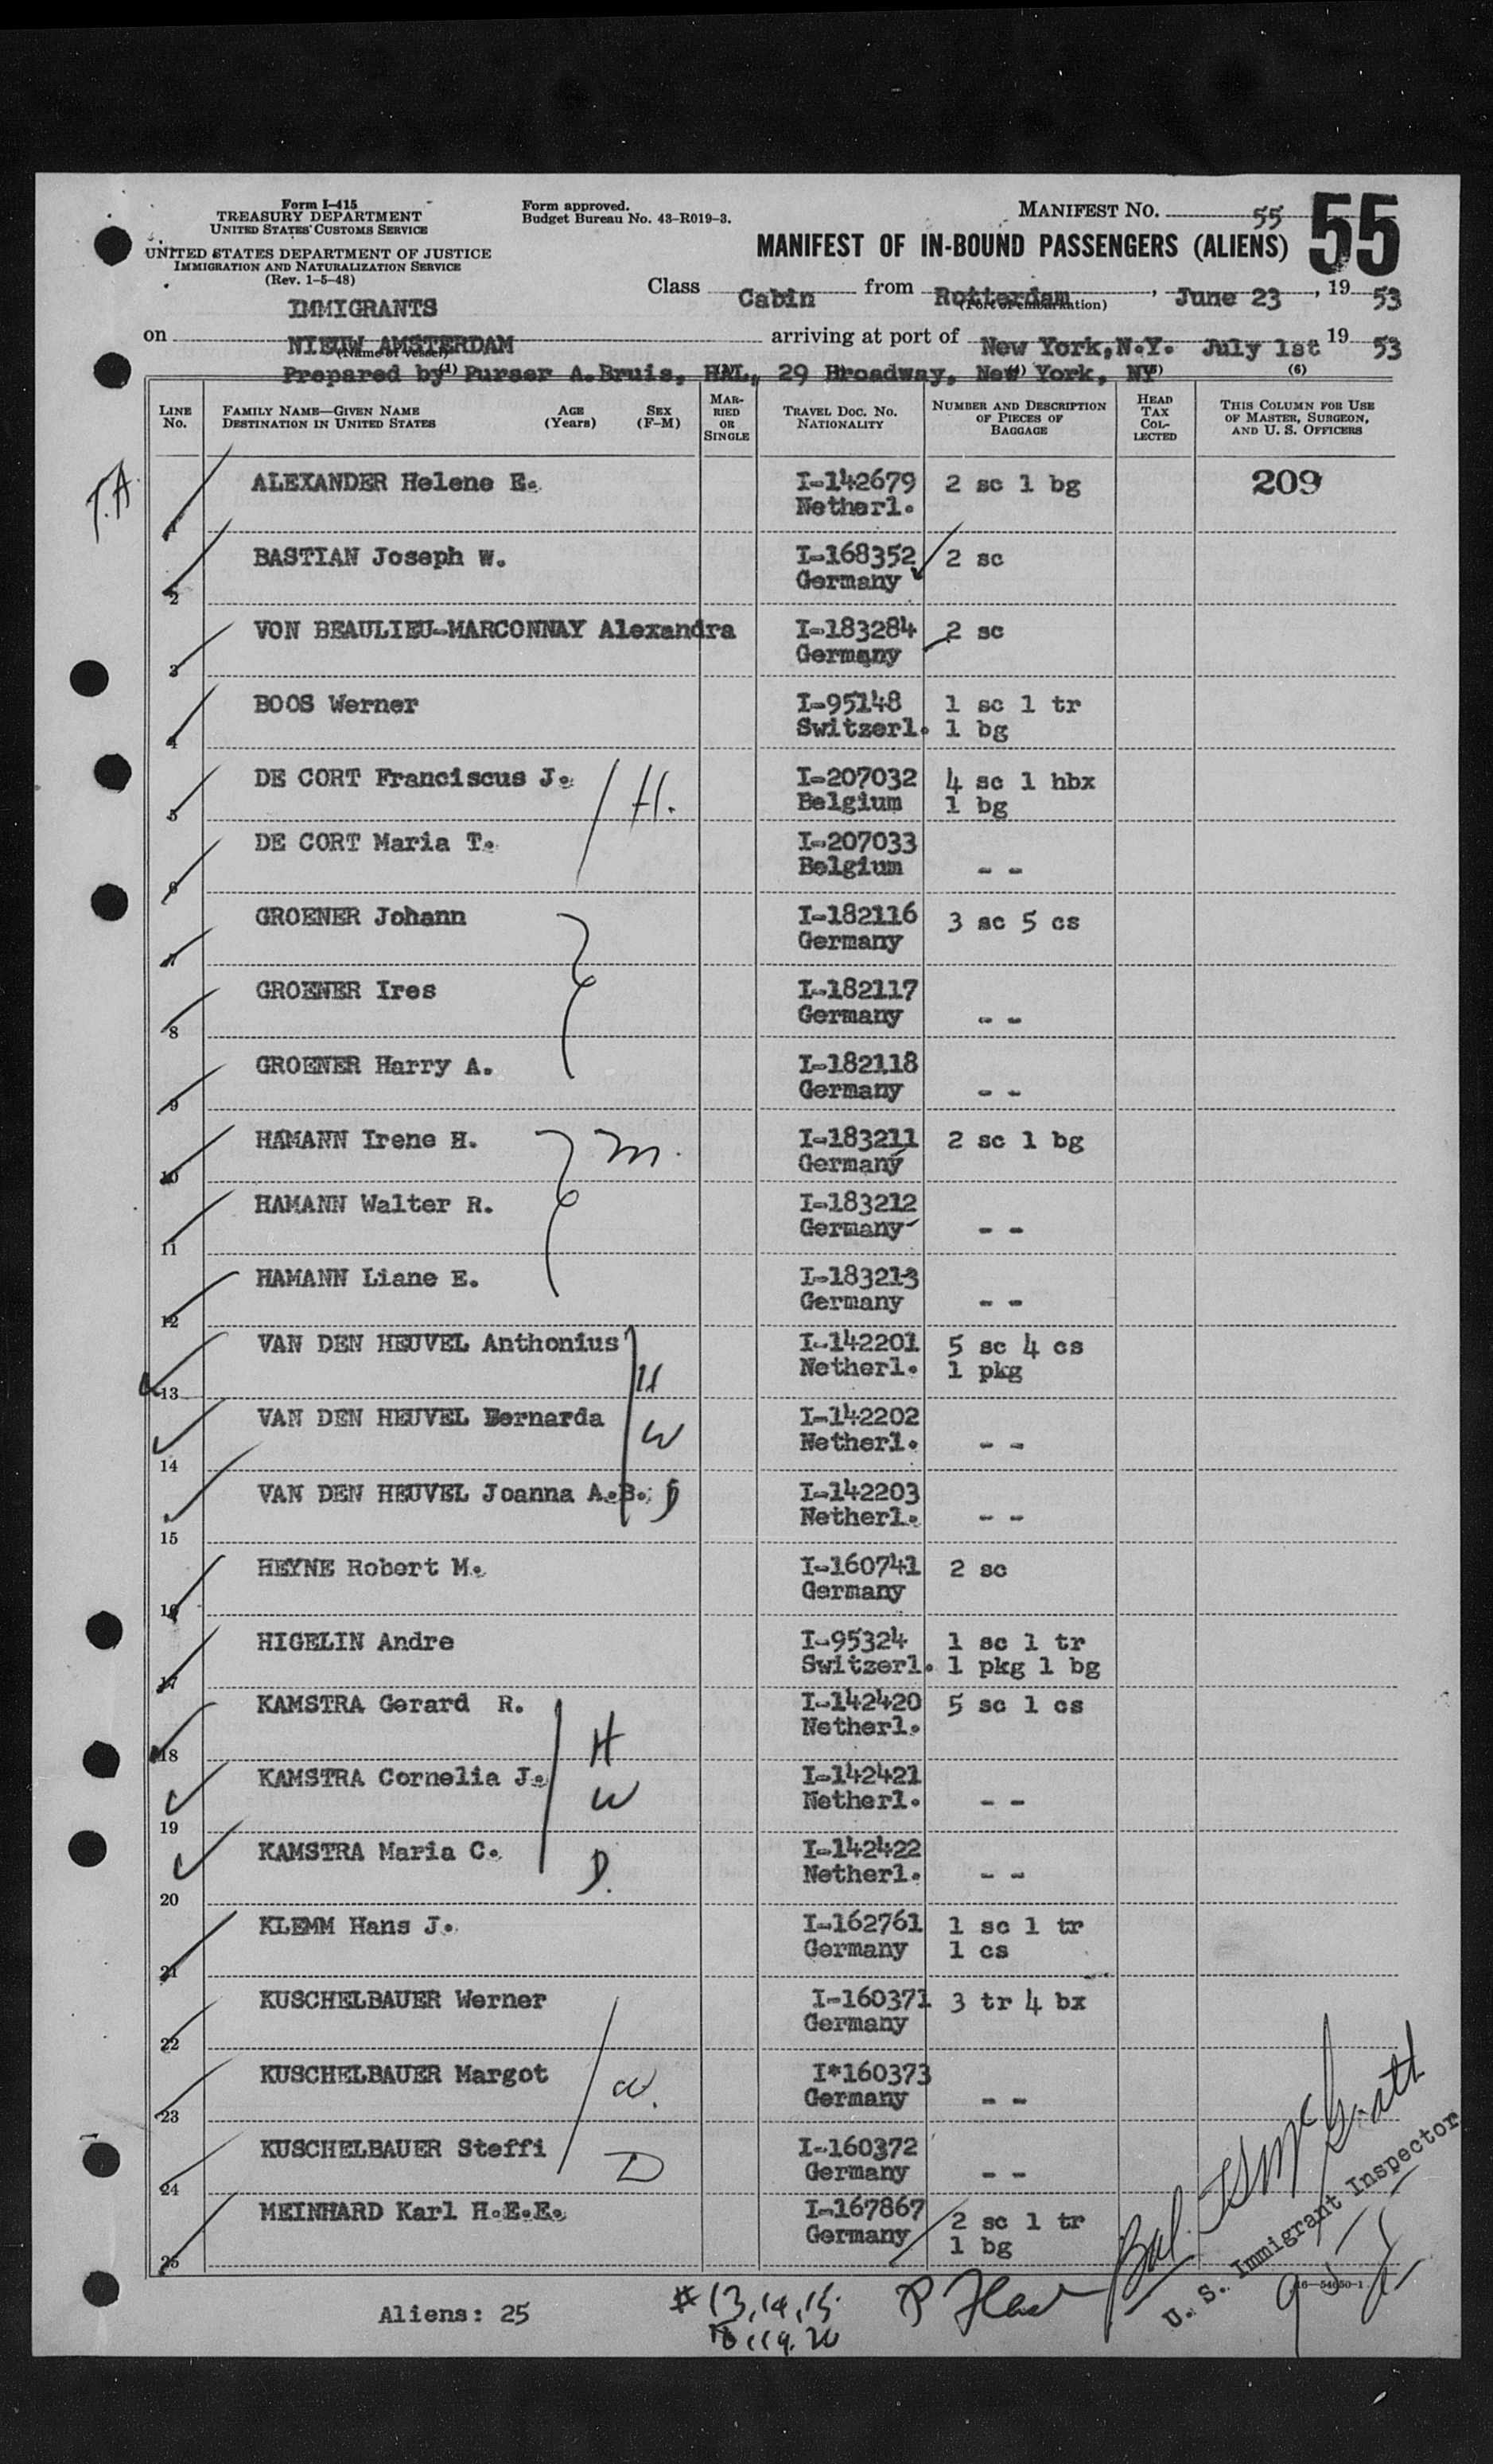 Form I-415
TREASURY DEPARTMENT
UNITED STATES CUSTOMS SERVICE
UNITED STATES DEPARTMENT OF JUSTICE
IMMIGRATION AND NATURALIZATION SERVICE
(Rev. 1-5-48)
Form approved.
Budget Bureau No. 43-R019-3.
MANIFEST NO. 55
55
MANIFEST OF IN-BOUND PASSENGERS (ALIENS)
Class Cabin from Rotterdam, June 23, 19 53
(Port of embarkation)
IMMIGRANTS
on NIEUW AMSTERDAM arriving at port of New York, N.Y. July 1st 19 53
(Name of vessel)
Prepared by Purser A.Bruis, HAL, 29 Broadway, New York, NY
(1) (4) (5) (6)
LINE NO. FAMILY NAME—GIVEN NAME DESTINATION IN UNITED STATES AGE (Years) SEX (F-M) MARRIED OR SINGLE TRAVEL DOC. NO. NATIONALITY NUMBER AND DESCRIPTION OF PIECES OF BAGGAGE HEAD TAX COLLECTED THIS COLUMN FOR USE OF MASTER, SURGEON, AND U. S. OFFICERS
T.A.
1 ALEXANDER Helene E. I-142679 2 sc 1 bg 209
Netherl.
2 BASTIAN Joseph W. I-168352 2 sc
Germany
3 VON BEAULIEU-MARCONNAY Alexandra I-183284 2 sc
Germany
4 BOOS Werner I-95148 1 sc 1 tr
Switzerl. 1 bg
5 DE CORT Franciscus J. H. I-207032 4 sc 1 hbx
Belgium 1 bg
6 DE CORT Maria T. I-207033
Belgium - -
7 GROENER Johann I-182116 3 sc 5 cs
Germany
8 GROENER Ires I-182117
Germany - -
9 GROENER Harry A. I-182118
Germany - -
10 HAMANN Irene H. M. I-183211 2 sc 1 bg
Germany
11 HAMANN Walter R. I-183212
Germany - -
12 HAMANN Liane E. I-183213
Germany - -
13 VAN DEN HEUVEL Anthonius H I-142201 5 sc 4 cs
Netherl. 1 pkg
14 VAN DEN HEUVEL Bernarda W I-142202
Netherl. - -
15 VAN DEN HEUVEL Joanna A.B. D I-142203
Netherl. - -
16 HEYNE Robert M. I-160741 2 sc
Germany
17 HIGELIN Andre I-95324 1 sc 1 tr
Switzerl. 1 pkg 1 bg
18 KAMSTRA Gerard R. H I-142420 5 sc 1 cs
Netherl.
19 KAMSTRA Cornelia J. W I-142421
Netherl. - -
20 KAMSTRA Maria C. D. I-142422
Netherl. - -
21 KLEMM Hans J. I-162761 1 sc 1 tr
Germany 1 cs
22 KUSCHELBAUER Werner I-160371 3 tr 4 bx
Germany
23 KUSCHELBAUER Margot W. I*160373
Germany - -
24 KUSCHELBAUER Steffi D I-160372
Germany - -
25 MEINHARD Karl H.E.E. I-167867 2 sc 1 tr
Germany 1 bg
Bal.
U. S. Immigrant Inspector
Aliens: 25
#13,14,15
18,19,20